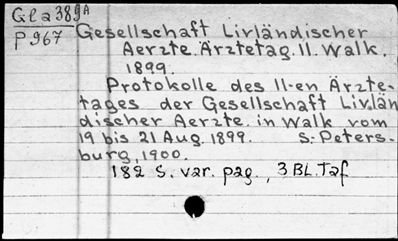 Gla389A
P967
Gesellschaft Livländischer
Aerzte. Ärztetag. II. Walk.
1899.
Protokolle des II-en Ärzte-
tages der Gesellschaft Livlän
discher Aerzte. in Walk vom
19 bis 21 Aug. 1899. S:-Peters-
burg, 1900.
182 S. var. pag., 3 BL. Taf